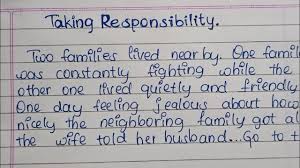 Taking Responsibility.
Two families lived nearby. One famil
was constantly fighting while the
other one lived quietly and friendly
One day feeling jealous about how
nicely the neighboring family got al
the wife told her husband...Go to t